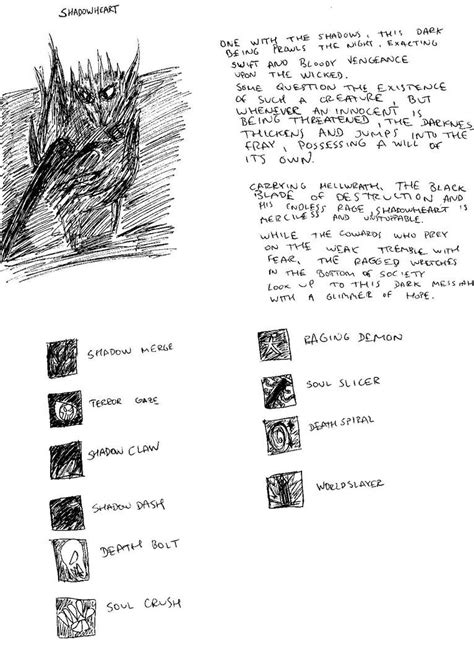 SHADOWHEART
ONE WITH THE SHADOWS, THIS DARK
BEING PROWLS THE NIGHT, EXACTING
SWIFT AND BLOODY VENGEANCE
UPON THE WICKED.
SOME QUESTION THE EXISTENCE
OF SUCH A CREATURE, BUT
WHENEVER AN INNOCENT IS
BEING THREATENED, THE DARKNESS
THICKENS AND JUMPS INTO THE
FRAY, POSSESSING A WILL OF
ITS OWN.
CARRYING HELLWRATH, THE BLACK
BLADE OF DESTRUCTION AND
HIS ENDLESS RAGE SHADOWHEART IS
MERCILESS AND UNSTOPPABLE.
WHILE THE COWARDS WHO PREY
ON THE WEAK TREMBLE WITH
FEAR, THE RAGGED WRETCHES
IN THE BOTTOM OF SOCIETY
LOOK UP TO THIS DARK MESSIAH
WITH A GLIMMER OF HOPE.
SHADOW MERGE
TERROR GAZE
SHADOW CLAW
SHADOW DASH
DEATH BOLT
SOUL CRUSH
RAGING DEMON
SOUL SLICER
DEATH SPIRAL
WORLDSLAYER